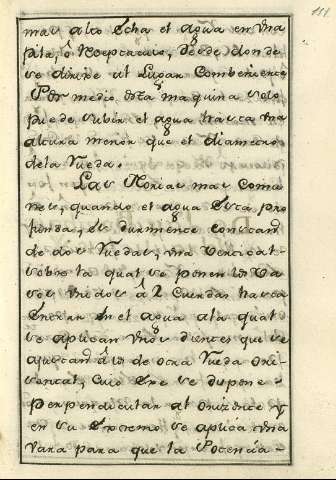 111
mas alto Echa el agua en una
pila, ô Receptaculo, desde donde
se dirije al Lugar Combeniente
Por medio desta maquina solo
puede subir el agua hasta una
altura menor que el diametro
dela Rueda.
Las Norias mas Comu
nes, quando el agua Esta pro
funda, se
de dos Ruedas, una Vertical
sobre la qual se ponen los Va
sos unidos â 2 Cuerdas hasta
Entrar En el agua ala qual
se aplican unos dientes que se
ajustan â los de otra Rueda Ori-
sontal, Cuio Exe se dispone-
perpendicular al Orizonte y
en su Extremo se aplica una
Vara para que la Potencia-